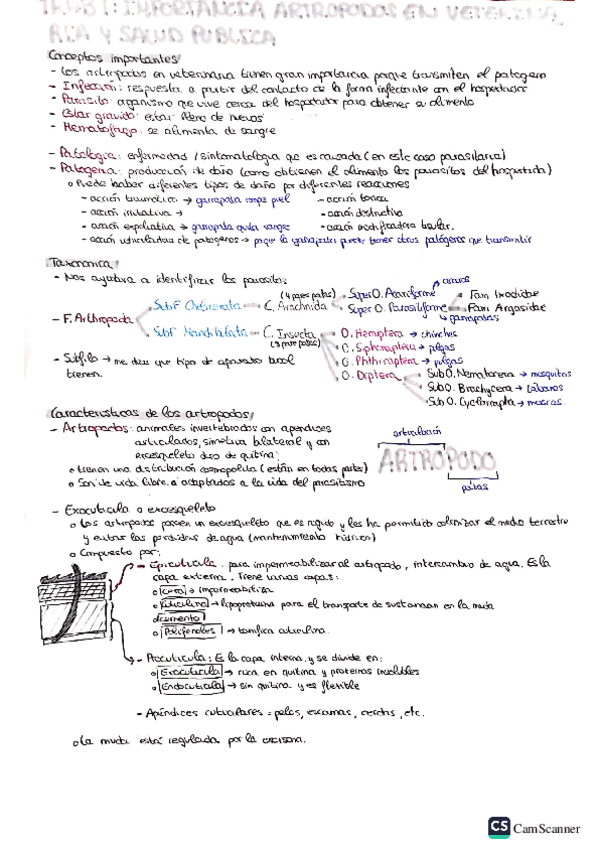 TEMA 1: IMPORTANCIA ARTROPODOS EN VETERINA
RIA Y SALUD PUBLICA
Conceptos importantes
- Los artropodos en veterinaria tienen gran importancia porque transmiten el patogeno
- Infección: respuesta a partir del contacto de la forma infectante con el hospedador
- Parasito: organismo que vive cerca del hospedador para obtener su alimento
- Estar gravido: estar lleno de huevos
- Hematofago: se alimenta de sangre
- Patologia: enfermedad / sintomatologia que es causada (en este caso parasitaria)
- Patogenia: produccion de daño (como obtienen el alimento los parasitos del hospedador)
o Puede haber diferentes tipos de daño por diferentes reacciones
- acción traumatica → garrapata rompe piel - acción toxica
- acción irritativa → - acción destructiva
- acción expoliativa → garrapata quita sangre - acción modificadora tisular.
- acción vehiculadora de patogenos → porque la garrapata puede tener otros patógenos que transmitir
Taxonomia
- Nos ayudara a identificar los parasitos
- F. Arthropoda
SubF Chelicerata → C. Arachnida (4 pares patas)
Super O. Acariforme → acaros
Super O. Parasitiforme → garrapatas
Fam Ixodidae
Fam Argasidae
SubF Mandibulata → C. Insecta (3 pares patas)
O. Hemiptera → chinches
O. Siphonaptera → pulgas
O. Phthiraptera → pulgas
O. Diptera
Sub O. Nematocera → mosquitos
Sub O. Brachycera → tabanos
Sub O. Cyclorrapha → moscas
- Subfilo → me dice que tipo de aparato bucal
tienen.
Caracteristicas de los artropodos
- Artropodos: animales invertebrados con apendices
articulados, simetria bilateral y con
exoesqueleto duro de quitina:
o tienen una distribución cosmopolita (están en todas partes)
o Son de vida libre o adaptados a la vida del parasitismo
articulación
ARTROPODO
patas
- Exocuticula o exoesqueleto
o Los artropodos poseen un exoesqueleto que es rigido y les ha permitido colonizar el medio terrestre
y evitar las perdidas de agua (mantenimiento hidrico)
o Compuesto por:
- Epicuticula: para impermeabilizar al artropodo, intercambio de agua. Es la
capa externa. Tiene varias capas:
o Cera → impermeabiliza
o Cuticulina → lipoproteina para el transporte de sustancias en la muda
o Cemento
o Polifenoles → tanifica cuticulina.
- Procuticula: Es la capa interna, y se divide en:
o Exocuticula → rica en quitina y proteinas insolubles
o Endocuticula → sin quitina y es flexible
- Apéndices cuticulares = pelos, escamas, cerdas, etc.
o La muda está regulada por la ecdisona.
CS CamScanner